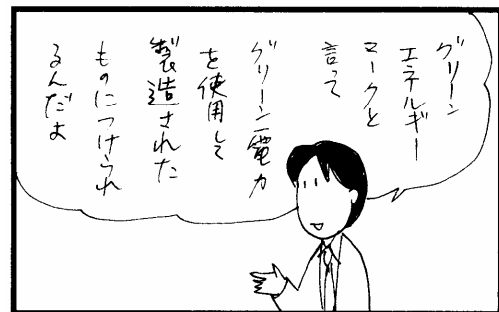 グリーン
エネルギー
マークと
言って
グリーン電力
を使用して
製造された
ものにつけられ
るんだよ